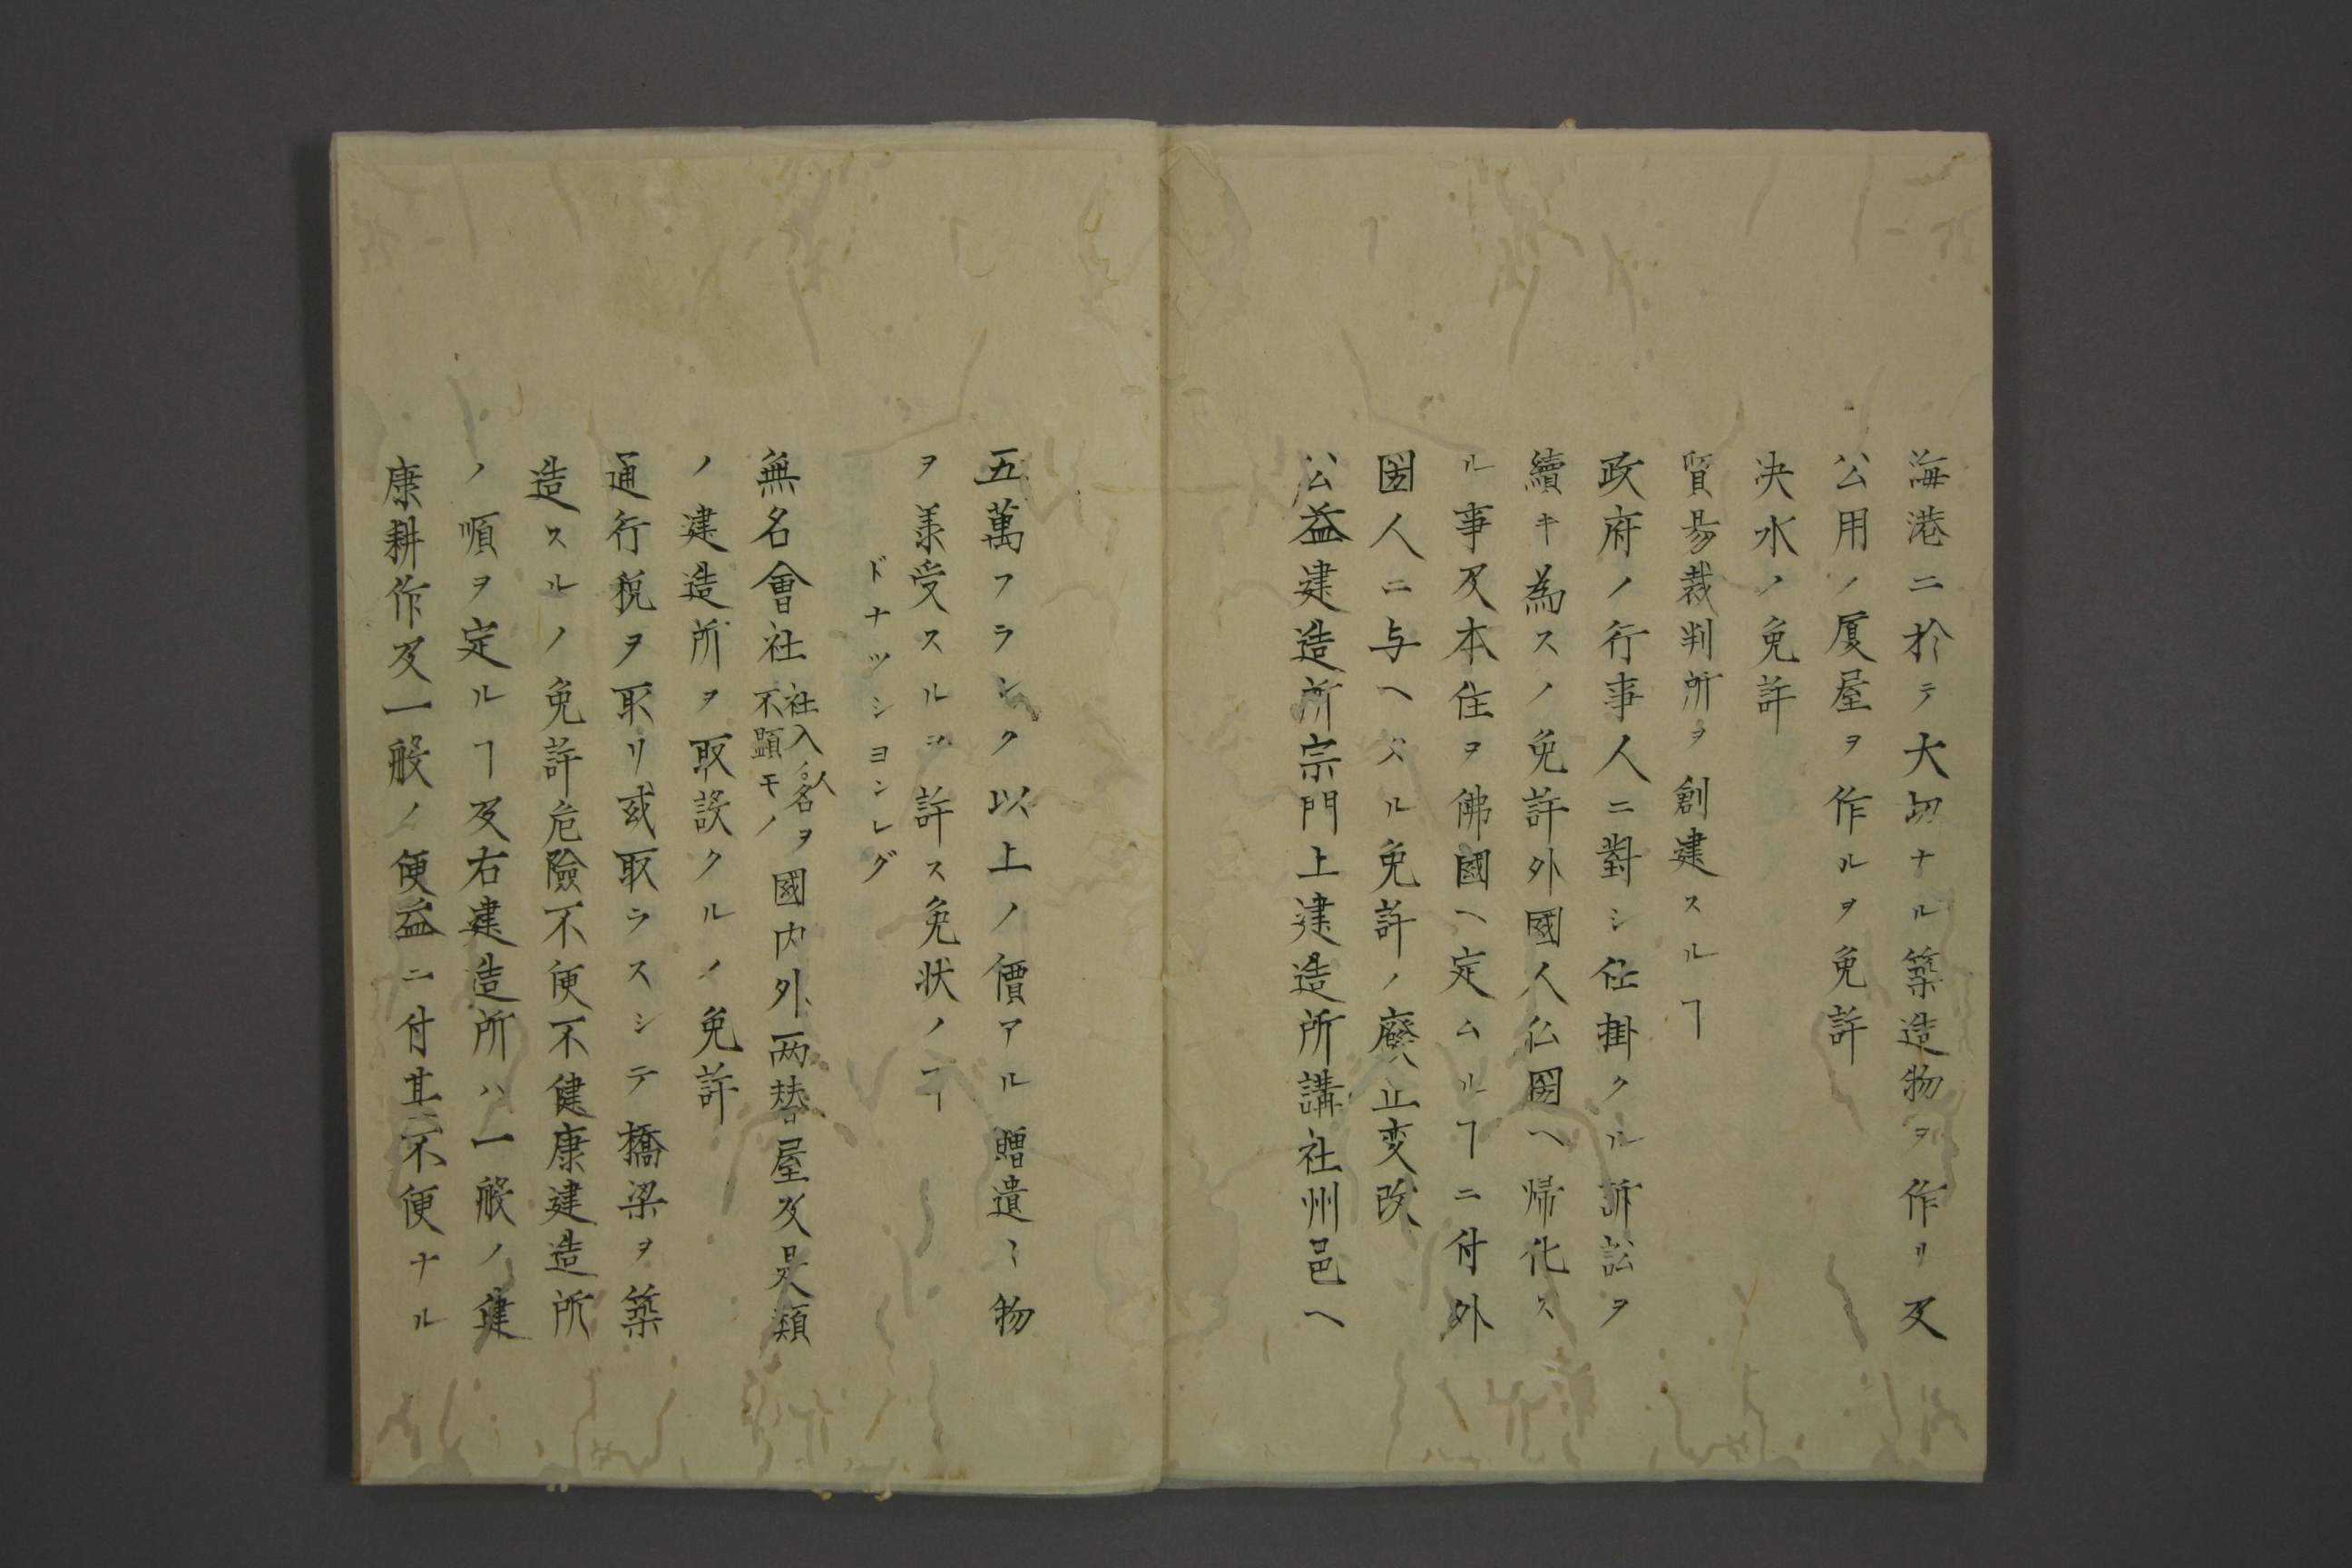 海港ニ於テ大切ナル築造物ヲ作リ及
公用ノ厦屋ヲ作ルヲ免許
决水ノ免許
貿昜裁判所ヲ創建スルヿ
政府ノ行事人ニ對シ仕掛クル訴訟ヲ
續キ為スノ免許外國人仏国ヘ帰化ス
ル事及本住ヲ佛國ヘ定ムルヿニ付外
国人ニ与ヘズル免許ノ廢止变改
公益建造所宗門上建造所講社州邑ヘ
五萬フランク以上ノ價アル贈遺ミ物
ヲ羕受スルヲ許ス免状ノヿ
ドナツシヨンレグ
無名會社 社入ノ人名ヲ不顕モノ 國内外两替屋及是類
ノ建造所ヲ取設クルノ免許
通行税ヲ取リ或取ラスシテ橋梁ヲ築
造スルノ免許危險不便不健康建造所
ノ順ヲ定ルヿ及右建造所ハ一般ノ健
康耕作及一般ノ便益ニ付其不便ナル